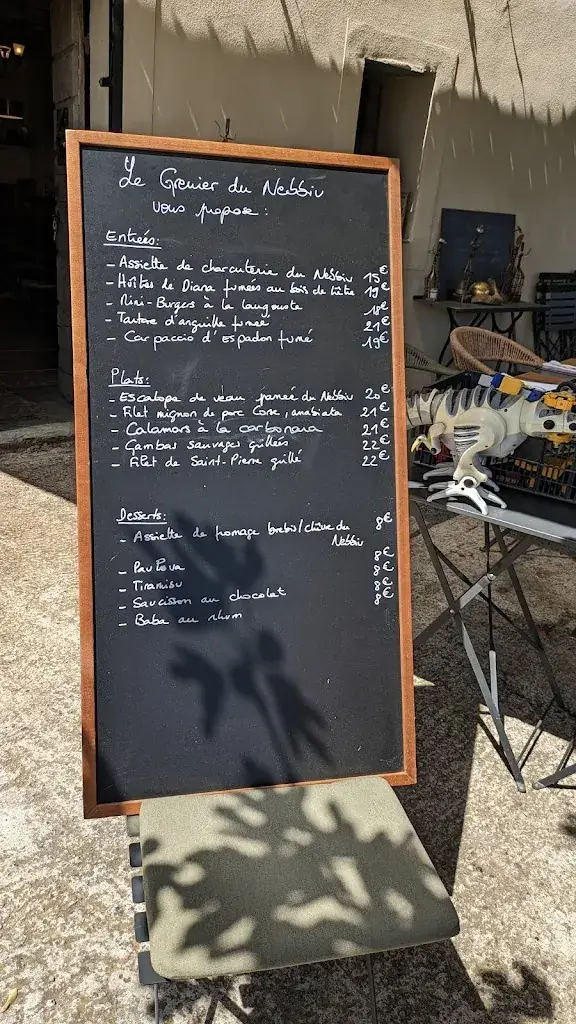 Le Grenier du Nebbiu
vous propose :
Entrées:
- Assiette de charcuterie du Nebbiu 15€
- Huîtres de Diana fumées au bois de hêtre 19€
- Mini-Burgers à la langouste 18€
- Tartare d'anguille fumée 21€
- Carpaccio d'Espadon fumé 19€
Plats:
- Escalope de veau panée du Nebbiu 20€
- Filet mignon de porc Corse, 21€
- Calamars à la carbonara 21€
- Gambas sauvages grillées 22€
- Filet de Saint-Pierre grillé 22€
Desserts:
- Assiette de fromage brebis/chèvre du 8€
Nebbiu
- Pavlova 8€
- Tiramisu 8€
- Saucisson au chocolat 8€
- Baba au rhum 8€